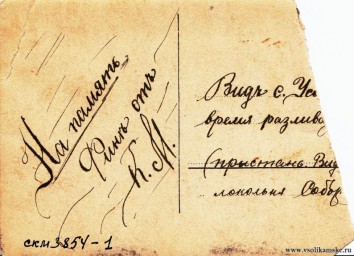 На память
Финѣ отъ
К. М.
Видъ с. Усо
время разлив
(пристань Вид
локольня Собор
скм 3854-1
www.vsolikamske.ru